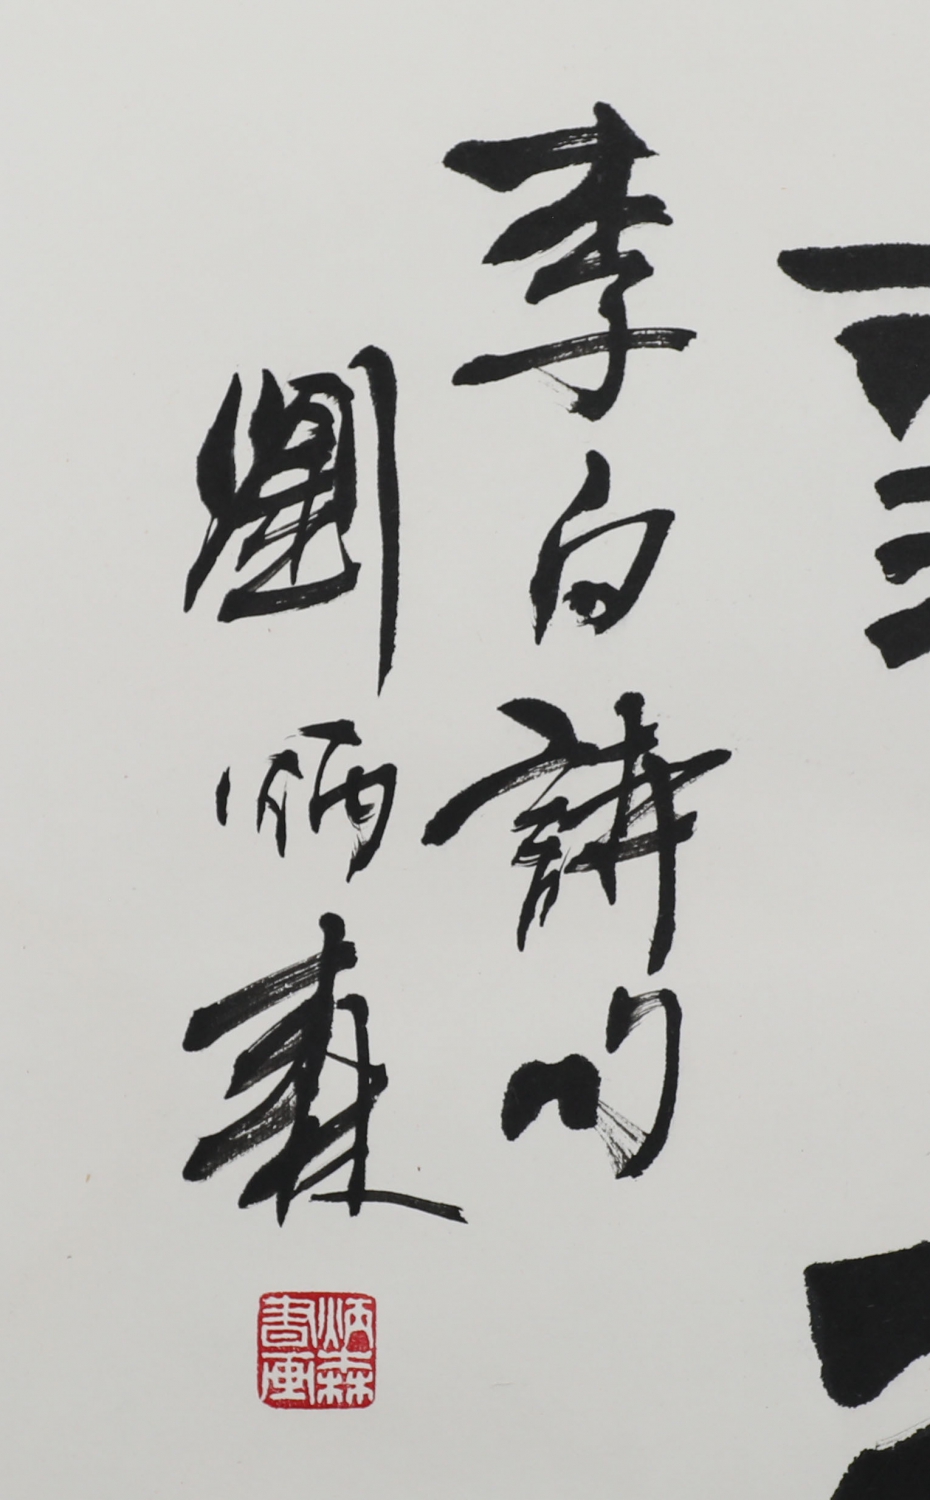 李白詩句
劉炳森
炳森
書画